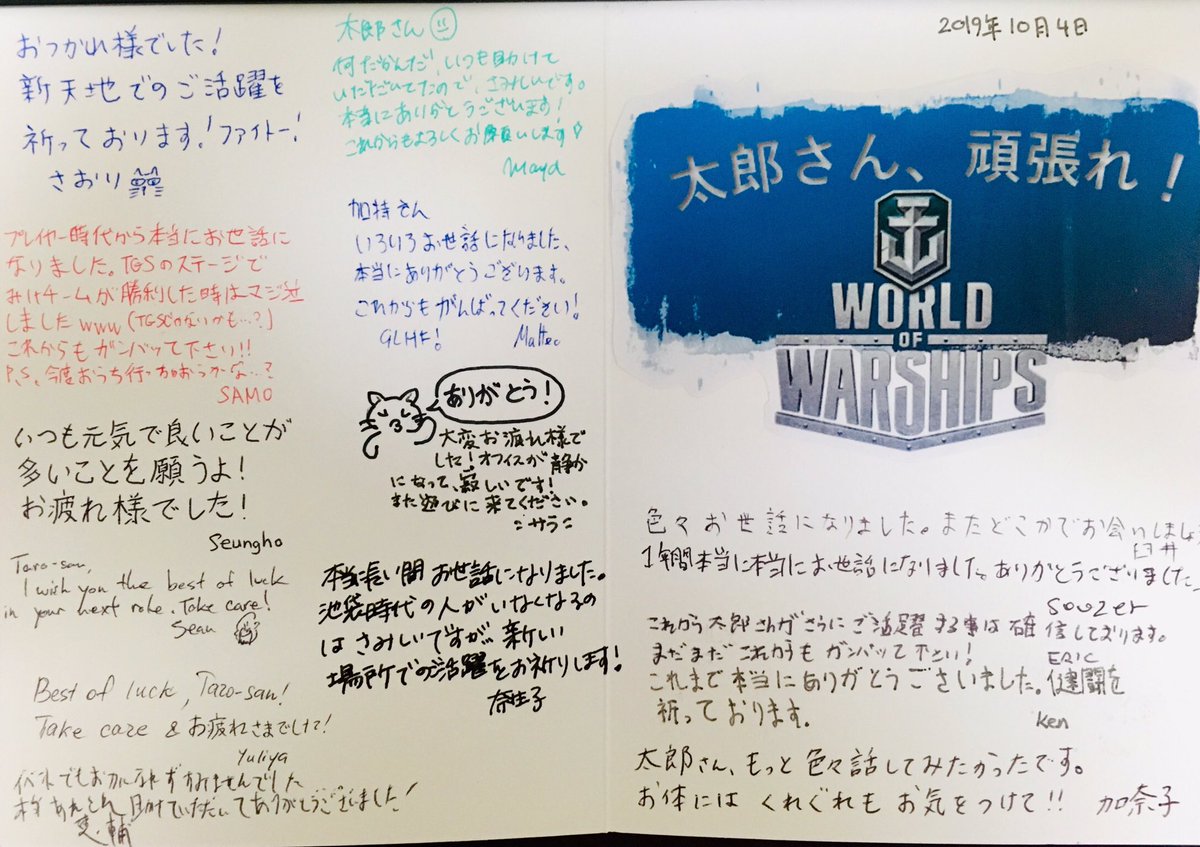 おつかれ様でした!
新天地でのご活躍を
祈っております!ファイトー!
さおり
プレイヤー時代から本当にお世話に
なりました。TGSのステージで
みけチームが勝利した時はマジ泣
しましたwww(TGSじゃないかも…?)
これからもガンバッて下さい!!
P.S. 今度おうち行っちゃおうかな…?
SAMO
いつも元気で良いことが
多いことを願うよ!
お疲れ様でした!
Seungho
Taro-san,
I wish you the best of luck
in your next role. Take care!
Sean
Best of luck, Taro-san!
Take care & お疲れさまでした!
Yuliya
すみませんでした
助けていただいてありがとうございました!
太郎さん
何だかんだ、いつも助けて
いただいてたので、さみしいです。
本当にありがとうございます!
これからもよろしくお願いします
Maya
加特さん
いろいろお世話になりました、
本当にありがとうございます。
これからもがんばってください!
GLHF! Matteo
ありがとう!
大変お疲れ様で
した!オフィスが静か
になって、寂しいです!
また遊びに来てください。
サラ
本当長い間お世話になりました。
池袋時代の人がいなくなるの
はさみしいですが新しい
場所でのご活躍をお祈りします!
奈生子
2019年10月4日
太郎さん、頑張れ!
WORLD
OF
WARSHIPS
色々お世話になりました。またどこかでお会いしましょ
臼井
1年間本当に本当にお世話になりました。ありがとうございました
Souzer
これから太郎さんがさらにご活躍する事は確信しております。
まだまだこれからもガンバッて下さい!
ERIC
これまで本当にありがとうございました。健闘を
祈っております。
Ken
太郎さん、もっと色々話してみたかったです。
お体にはくれぐれもお気をつけて!! 加奈子